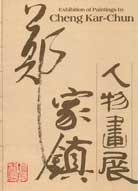 Exhibition of Paintings by
Cheng Kar-Chun
鄭家鎮
人物畫展